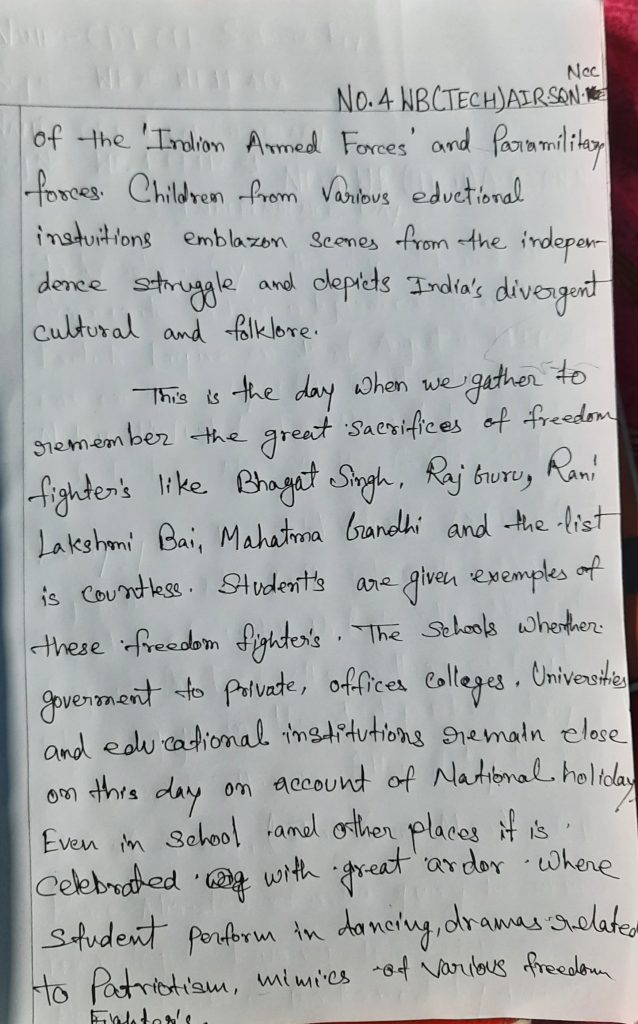 Ncc
NO. 4 WB(TECH)AIR SQN.
of the 'Indian Armed Forces' and Paramilitary
forces. Children from Various eductional
instuitions emblazon scenes from the indepen-
dence struggle and depicts India's divergent
cultural and folklore.
This is the day when we gather to
remember the great sacrifices of freedom
fighter's like Bhagat Singh, Raj Guru, Rani
Lakshmi Bai, Mahatma Gandhi and the list
is countless. Student's are given exemples of
these freedom fighter's. The Schools wherther
goverment to private, offices colleges, Universities
and educational institutions remain close
on this day on account of National holiday
Even in school and other places it is
celebrated with great ardor where
student perform in dancing, dramas related
to Patriotism, mimics of various freedom
Fighter's